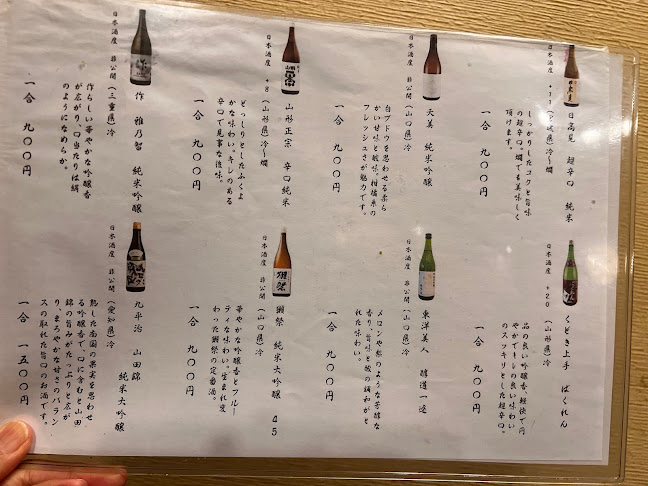 日高見 超辛口 純米
日本酒度 +11 (宮城県) 冷〜燗
しっかりしたコクと旨味
の超辛口。燗でも美味しく
頂けます。
一合 九〇〇円
天美 純米吟醸
日本酒度 非公開 (山口県) 冷
白ブドウを思わせる柔ら
かい甘味と酸味。柑橘系の
フレッシュさが魅力です。
一合 九〇〇円
山形正宗 辛口純米
日本酒度 +8 (山形県) 冷〜燗
どっしりとしたふくよ
かな味わい。キレのある
辛口で見事な後味。
一合 九〇〇円
作 雅乃智 純米吟醸
日本酒度 非公開 (三重県) 冷
作らしい華やかな吟醸香
が広がり、口当たりは絹
のようになめらか。
一合 九〇〇円
くどき上手 ばくれん
日本酒度 +20 (山形県) 冷
品の良い吟醸香、軽快で円
やかでキレの良い味わい
のスッキリとした超辛口。
一合 九〇〇円
東洋美人 醇道一途
日本酒度 非公開 (山口県) 冷
メロンや梨のような芳醇な
香り、旨味と酸の調和がと
れた味わい。
一合 九〇〇円
獺祭 純米大吟醸 45
日本酒度 非公開 (山口県) 冷
華やかな吟醸香とフルー
ティな味わい。生まれ変
わった獺祭の定番酒。
一合 九〇〇円
九平治 山田錦
純米大吟醸
日本酒度 非公開 (愛知県) 冷
熟した南国の果実を思わせ
る吟醸香で、口に含むと山田
錦の旨みがたっぷりと広が
ります。やかな甘さとバラン
スの取れた旨口のお酒です。
一合 一五〇〇円